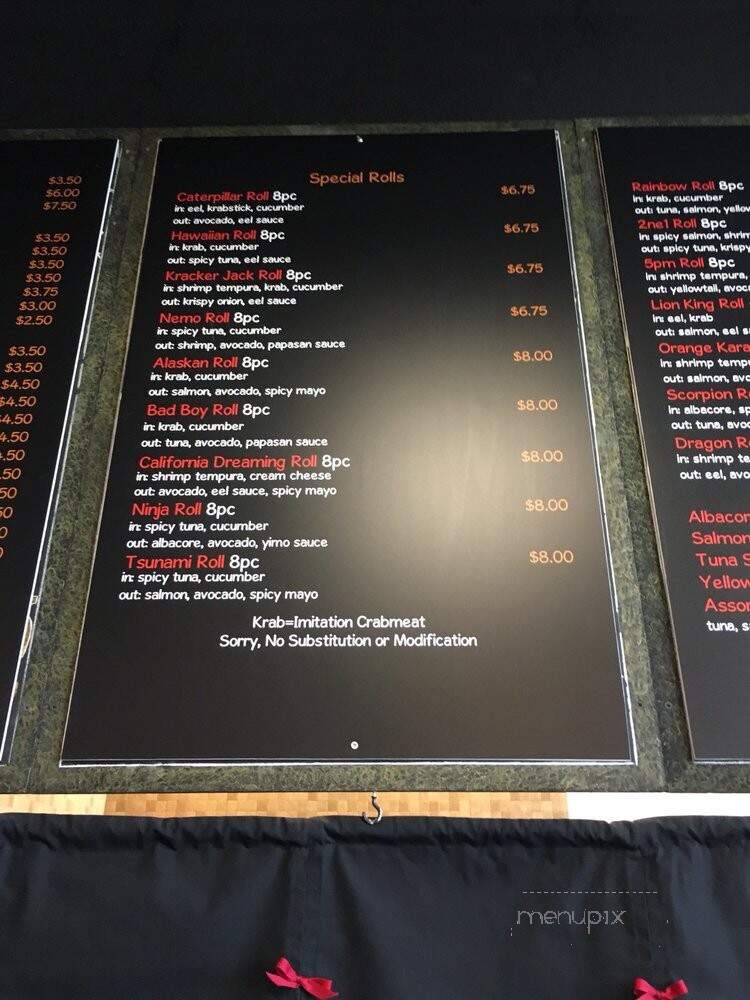 $3.50
$6.00
$7.50
$3.50
$3.50
$3.50
$3.50
$3.75
$3.00
$2.50
$3.50
$3.50
$4.50
$4.50
4.50
4.50
.50
50
50
0
0
Special Rolls
Caterpillar Roll 8pc $6.75
in: eel, krabstick, cucumber
out: avocado, eel sauce
Hawaiian Roll 8pc $6.75
in: krab, cucumber
out: spicy tuna, eel sauce
Kracker Jack Roll 8pc $6.75
in: shrimp tempura, krab, cucumber
out: krispy onion, eel sauce
Nemo Roll 8pc $6.75
in: spicy tuna, cucumber
out: shrimp, avocado, papasan sauce
Alaskan Roll 8pc $8.00
in: krab, cucumber
out: salmon, avocado, spicy mayo
Bad Boy Roll 8pc $8.00
in: krab, cucumber
out: tuna, avocado, papasan sauce
California Dreaming Roll 8pc $8.00
in: shrimp tempura, cream cheese
out: avocado, eel sauce, spicy mayo
Ninja Roll 8pc $8.00
in: spicy tuna, cucumber
out: albacore, avocado, yimo sauce
Tsunami Roll 8pc $8.00
in: spicy tuna, cucumber
out: salmon, avocado, spicy mayo
Krab=Imitation Crabmeat
Sorry, No Substitution or Modification
Rainbow Roll 8pc
in: krab, cucumber
out: tuna, salmon, yellow
2ne1 Roll 8pc
in: spicy salmon, shrim
out: spicy tuna, krispy
5pm Roll 8pc
in: shrimp tempura,
out: yellowtail, avoca
Lion King Roll
in: eel, krab
out: salmon, eel s
Orange Kara
in: shrimp tempu
out: salmon, avo
Scorpion Ro
in: albacore, sp
out: tuna, avoc
Dragon R
in: shrimp te
out: eel, avo
Albacor
Salmon
Tuna S
Yellow
Assor
tuna, s
menupix